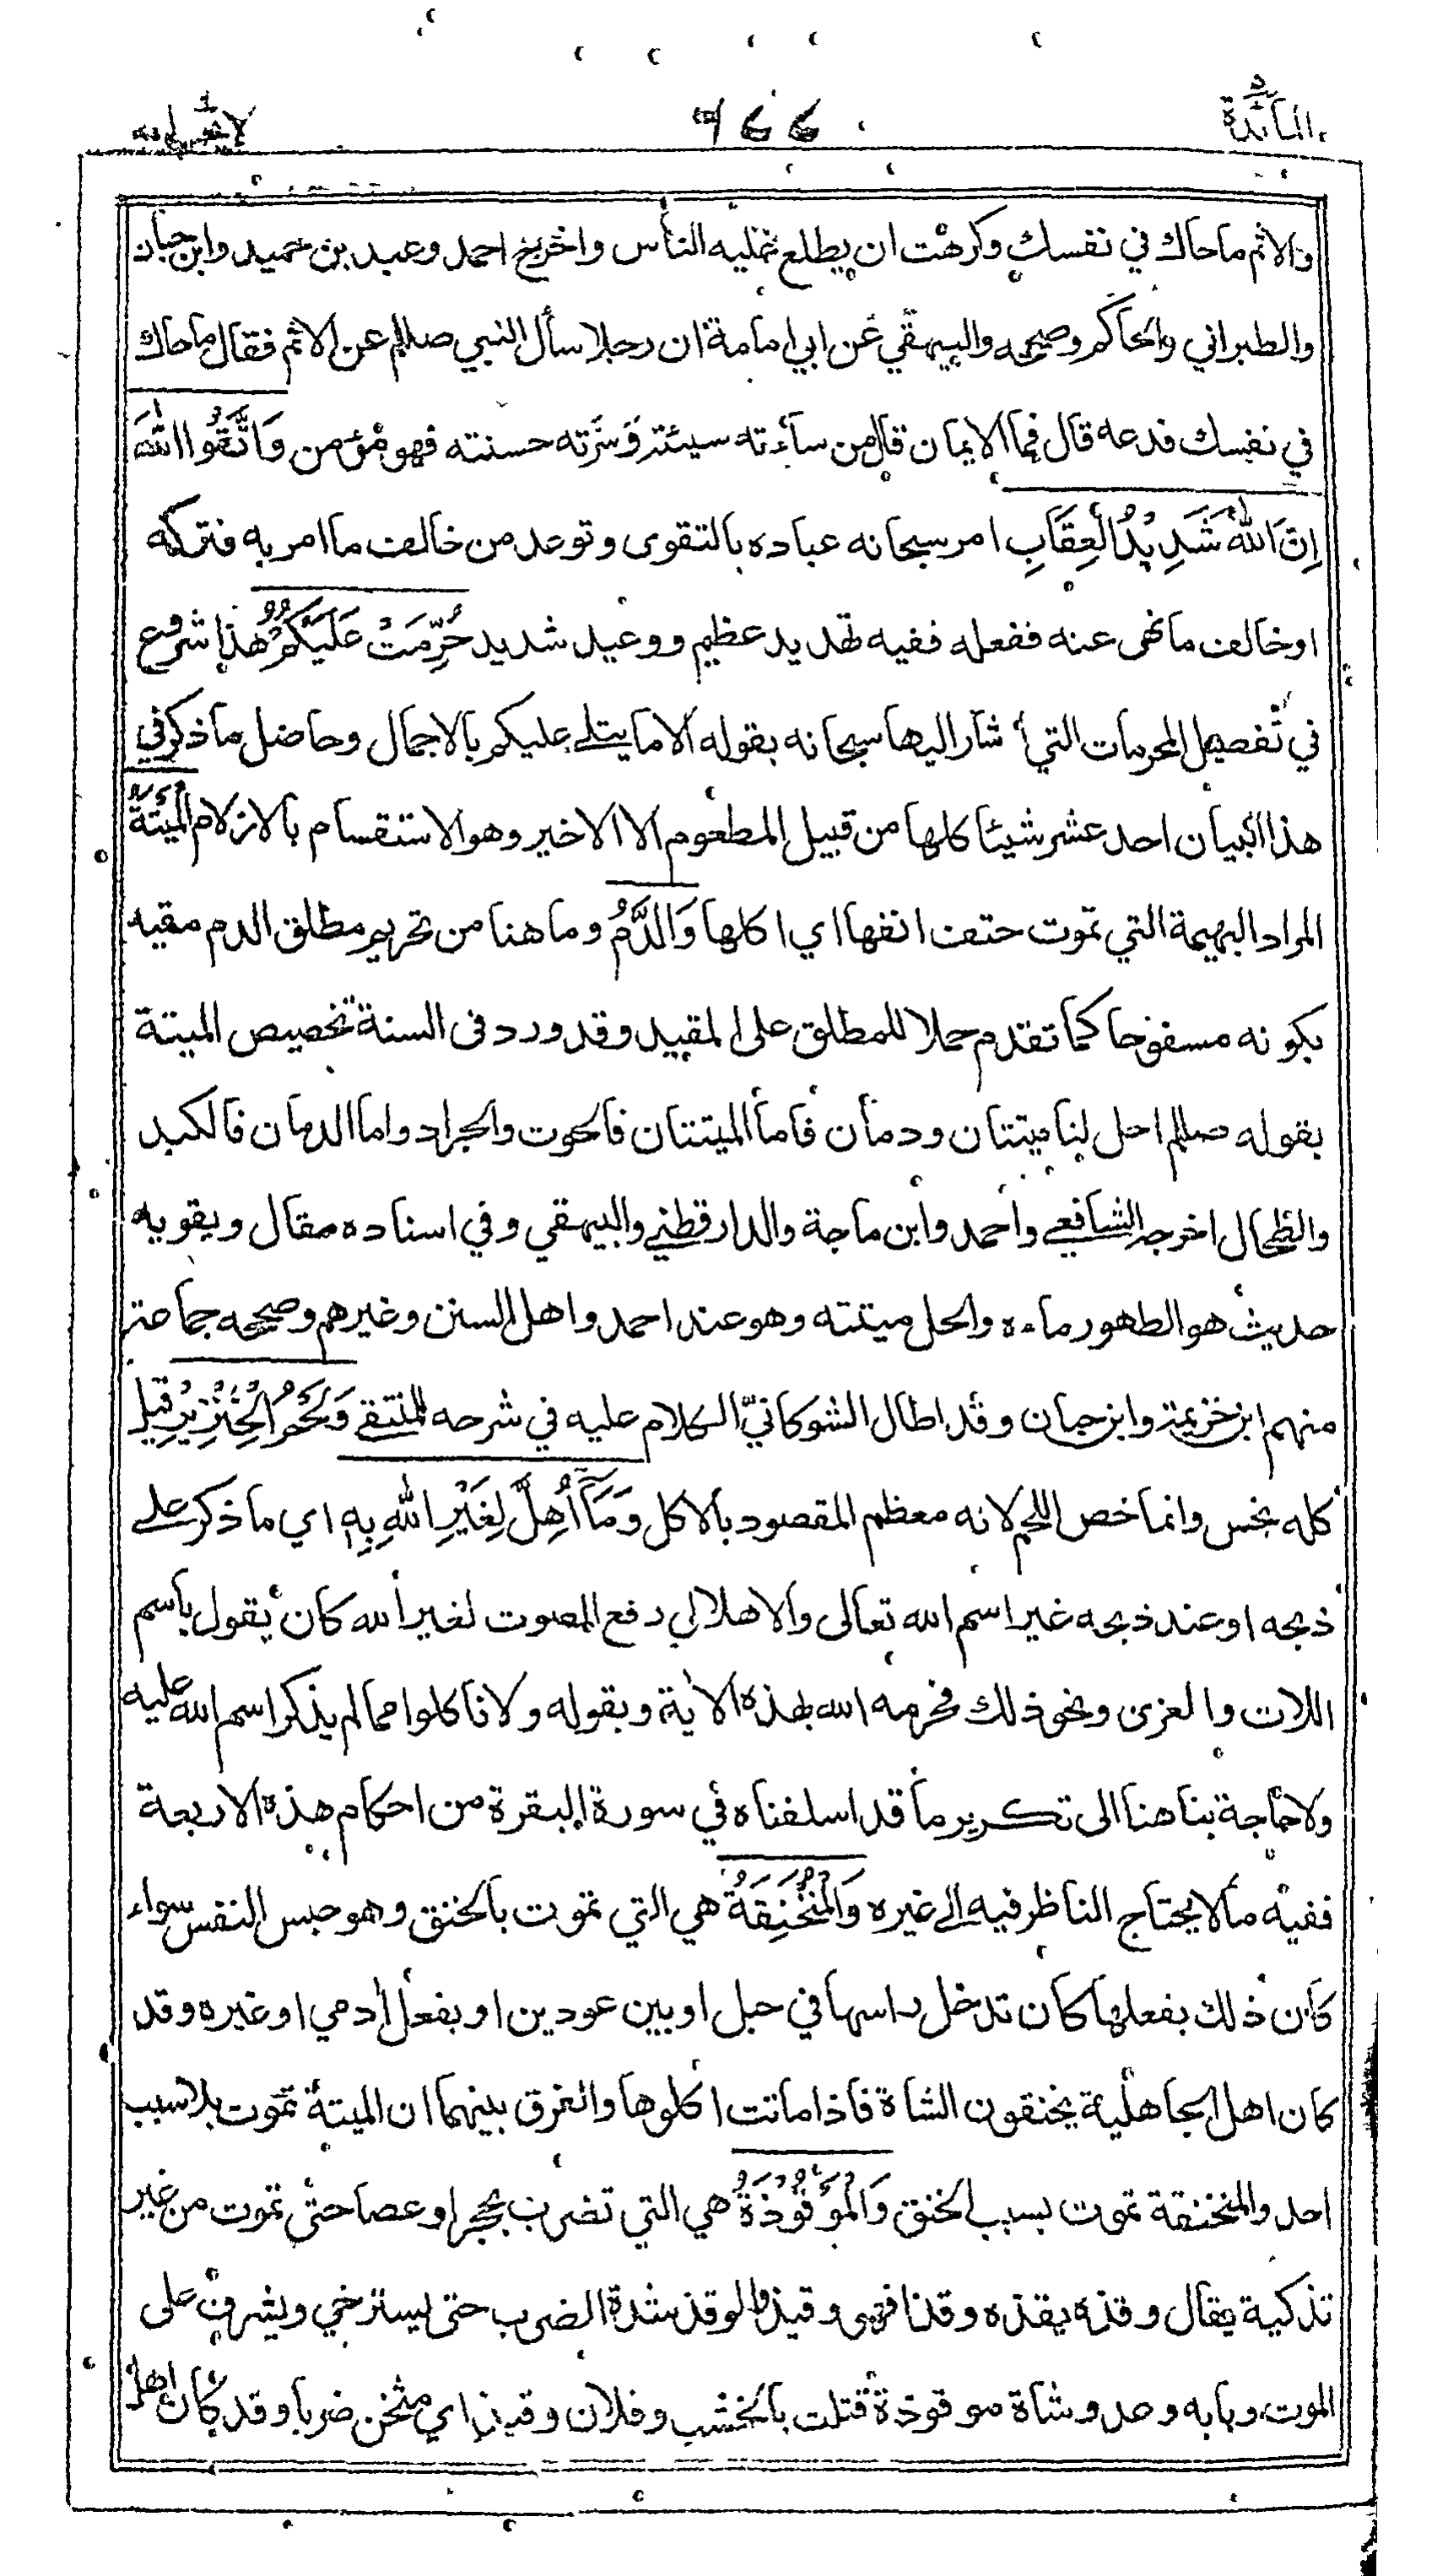 المائدة ٦٤٤ لا يحب الله
والاثم ماحاك في نفسك وكرهت ان يطلع عليه الناس واخرج احمد وعبد بن حميد وابن حبان
والطبراني والحاكم وصححه والبيهقي عن ابي امامة ان رجلا سأل النبي صللم عن الاثم فقال ماحاك
في نفسك فدعه قال فما الايمان قال من ساءته سيئته وسَرّته حسنته فهو مؤمن وَاتَّقُوا اللهَ
اِنَّ اللهَ شَدِيْدُ الْعِقَابِ امر سبحانه عباده بالتقوى وتوعد من خالف ما امر به فتركه
او خالف ما نهى عنه ففعله ففيه تهديد عظيم ووعيد شديد حُرِّمَتْ عَلَيْكُمُ هذا شروع
في تفصيل المحرمات التي أشار اليها سبحانه بقوله الا ما يتلى عليكم بالاجمال وحاصل ما ذكر في
هذا البيان احد عشر شيئا كلها من قبيل المطعوم الا الاخير وهو الاستقسام بالازلام الْمَيْتَةُ
المراد البهيمة التي تموت حتف انفها اي اكلها وَالدَّمُ وما هنا من تحريم مطلق الدم مقيد
بكونه مسفوحا كما تقدم حملا للمطلق على المقييد وقد ورد في السنة تخصيص الميتة
بقوله صللم احل لنا ميتتان ودمان فاما الميتتان فالحوت والجراد واما الدمان فالكبد
والطحال اخرجه الشافعي واحمد وابن ماجة والدارقطني والبيهقي وفي اسناده مقال ويقويه
حديث هو الطهور ماءه والحل ميتته وهو عند احمد واهل السنن وغيرهم وصححه جماعة
منهم ابن خزيمة وابن حبان وقد اطال الشوكانيّ الكلام عليه في شرحه للمنتقى وَلَحْمُ الْخِنْزِيْرِ قيل
كله نجس وانما خص اللحم لانه معظم المقصود بالاكل وَمَآ اُهِلَّ لِغَيْرِ اللهِ بِهِ اي ما ذكر على
ذبحه او عند ذبحه غير اسم الله تعالى والاهلال رفع الصوت لغير الله كان يقول باسم
اللات والعزى ونحو ذلك فحرمه الله بهذه الاية وبقوله ولا تاكلوا مما لم يذكر اسم الله عليه
ولا حاجة بنا هنا الى تكرير ما قد اسلفناه في سورة البقرة من احكام هذه الاربعة
ففيه ما لا يحتاج الناظر فيه الى غيره وَالْمُنْخَنِقَةُ هي التي تموت بالخنق وهو حبس النفس سواء
كان ذلك بفعلها كان تدخل راسها في حبل او بين عودين او بفعل اٰدمي او غيره وقد
كان اهل الجاهلية يخنقون الشاة فاذا ماتت اكلوها والفرق بينهما ان الميتة تموت بلا سبب
احد والمنخنقة تموت بسبب الخنق وَالْمَوْقُوْذَةُ هي التي تضرب بحجر او عصا حتى تموت من غير
تذكية يقال وقذه يقذه وقذا فهي وقيذ والوقذ شدة الضرب حتى يسترخي ويشرف على
الموت وبابه وعد وشاة موقوذة قتلت بالخشب وفلان وقيذ اي مثخن ضربا وقد كان اهل